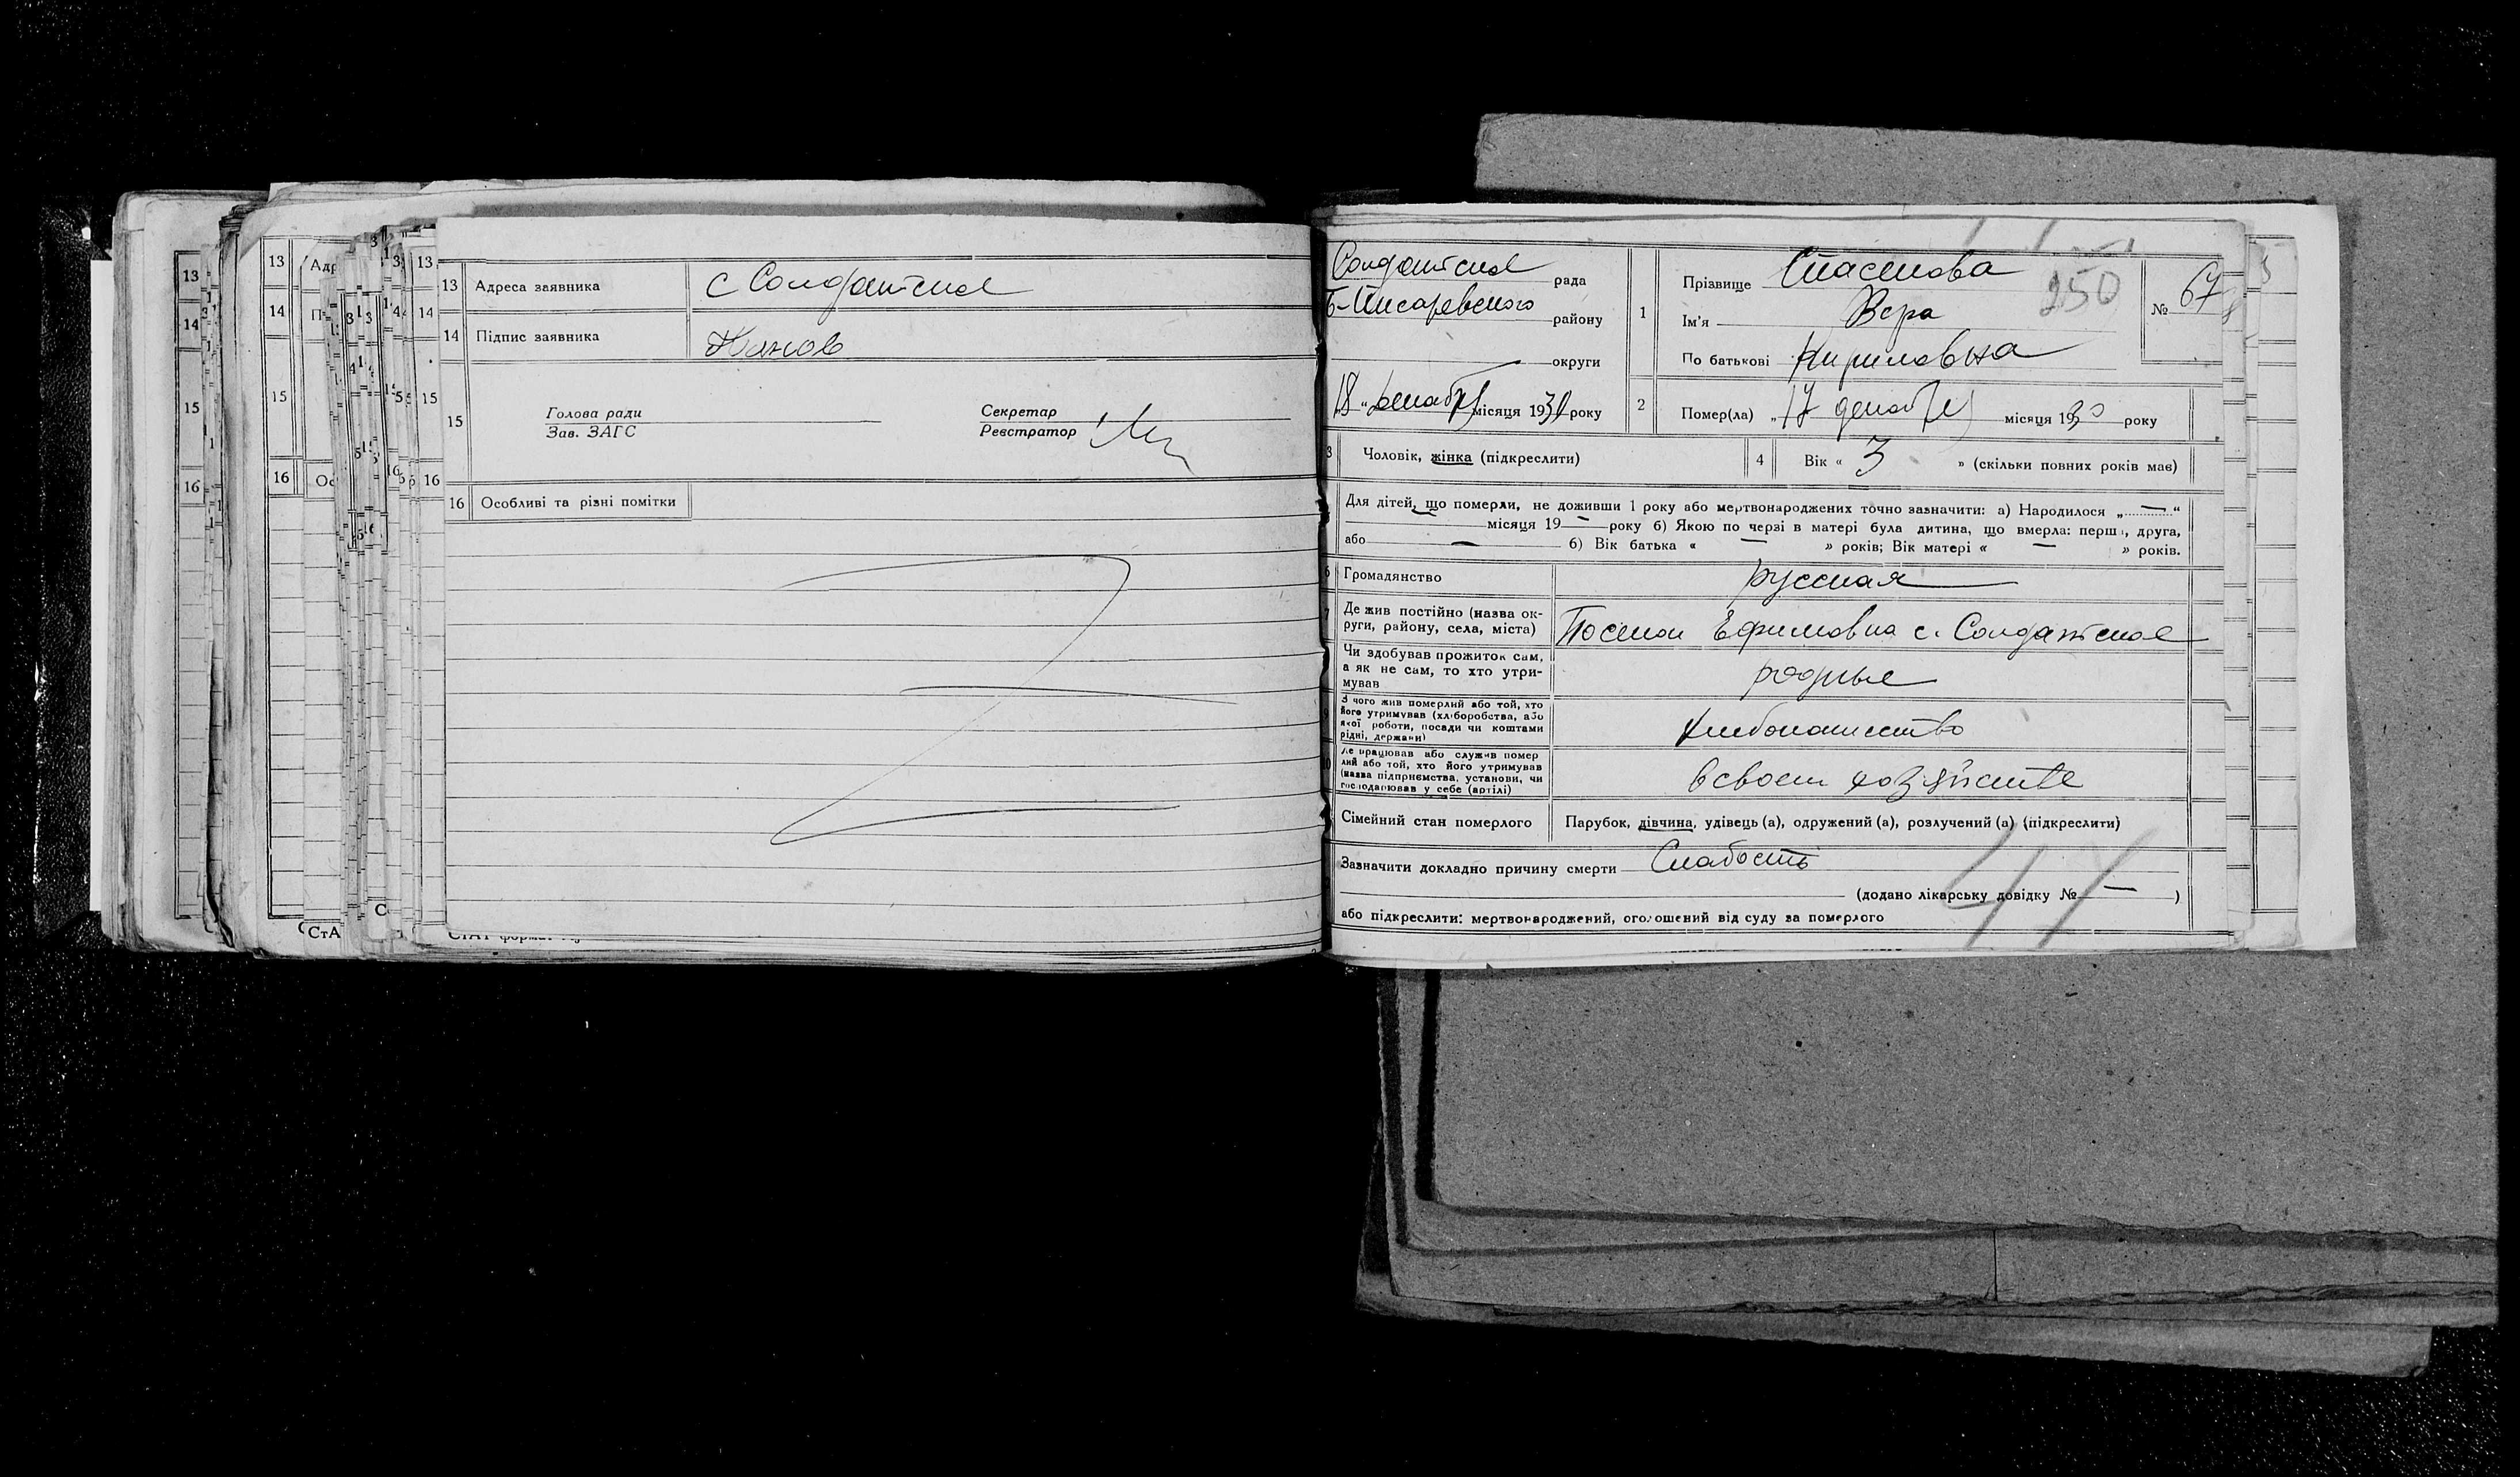 13 Адреса заявника с Солдатское
14 Підпис заявника
15 Голова ради Секретар
Зав. ЗАГС Реєстратор
16 Особливі та різні помітки
Солдатское рада
Б-Писаревского району
округи
18 „ декабря місяця 1930 року
1 Прізвище
Ім'я Вера
По батькові Кириловна
250
№ 67
2 Помер(ла) „17 декабря місяця 1930 року
3 Чоловік, жінка (підкреслити)
4 Вік « 3 » (скільки повних років має)
Для дітей, що померли, не доживши 1 року або мертвонароджених точно зазначити: а) Народилося „ — “
місяця 19 — року б) Якою по черзі в матері була дитина, що вмерла: перша, друга,
або — б) Вік батька « — » років; Вік матері « — » років.
6 Громадянство русская
7 Де жив постійно (назва ок-
руги, району, села, міста) Поселок Ефимовка с. Солдатское
Чи здобував прожиток сам,
а як не сам, то хто утри-
мував родные
З чого жив померлий або той, хто
його утримував (хліборобства, або
якої роботи, посади чи коштами
рідні, держави) хлебопашество
Де працював або служив помер
лий або той, хто його утримував
(назва підприємства, установи, чи
господарював у себе (артілі) в своем хозяйстве
Сімейний стан померлого Парубок, дівчина, удівець (а), одружений (а), розлучений (а) (підкреслити)
Зазначити докладно причину смерти Слабость
(додано лікарську довідку № — )
або підкреслити: мертвонароджений, оголошений від суду за померлого